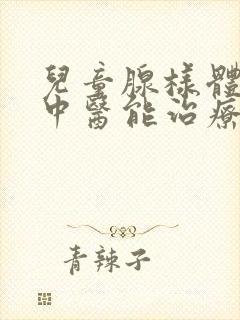 兒童腺樣體
中醫能治療
青辣子